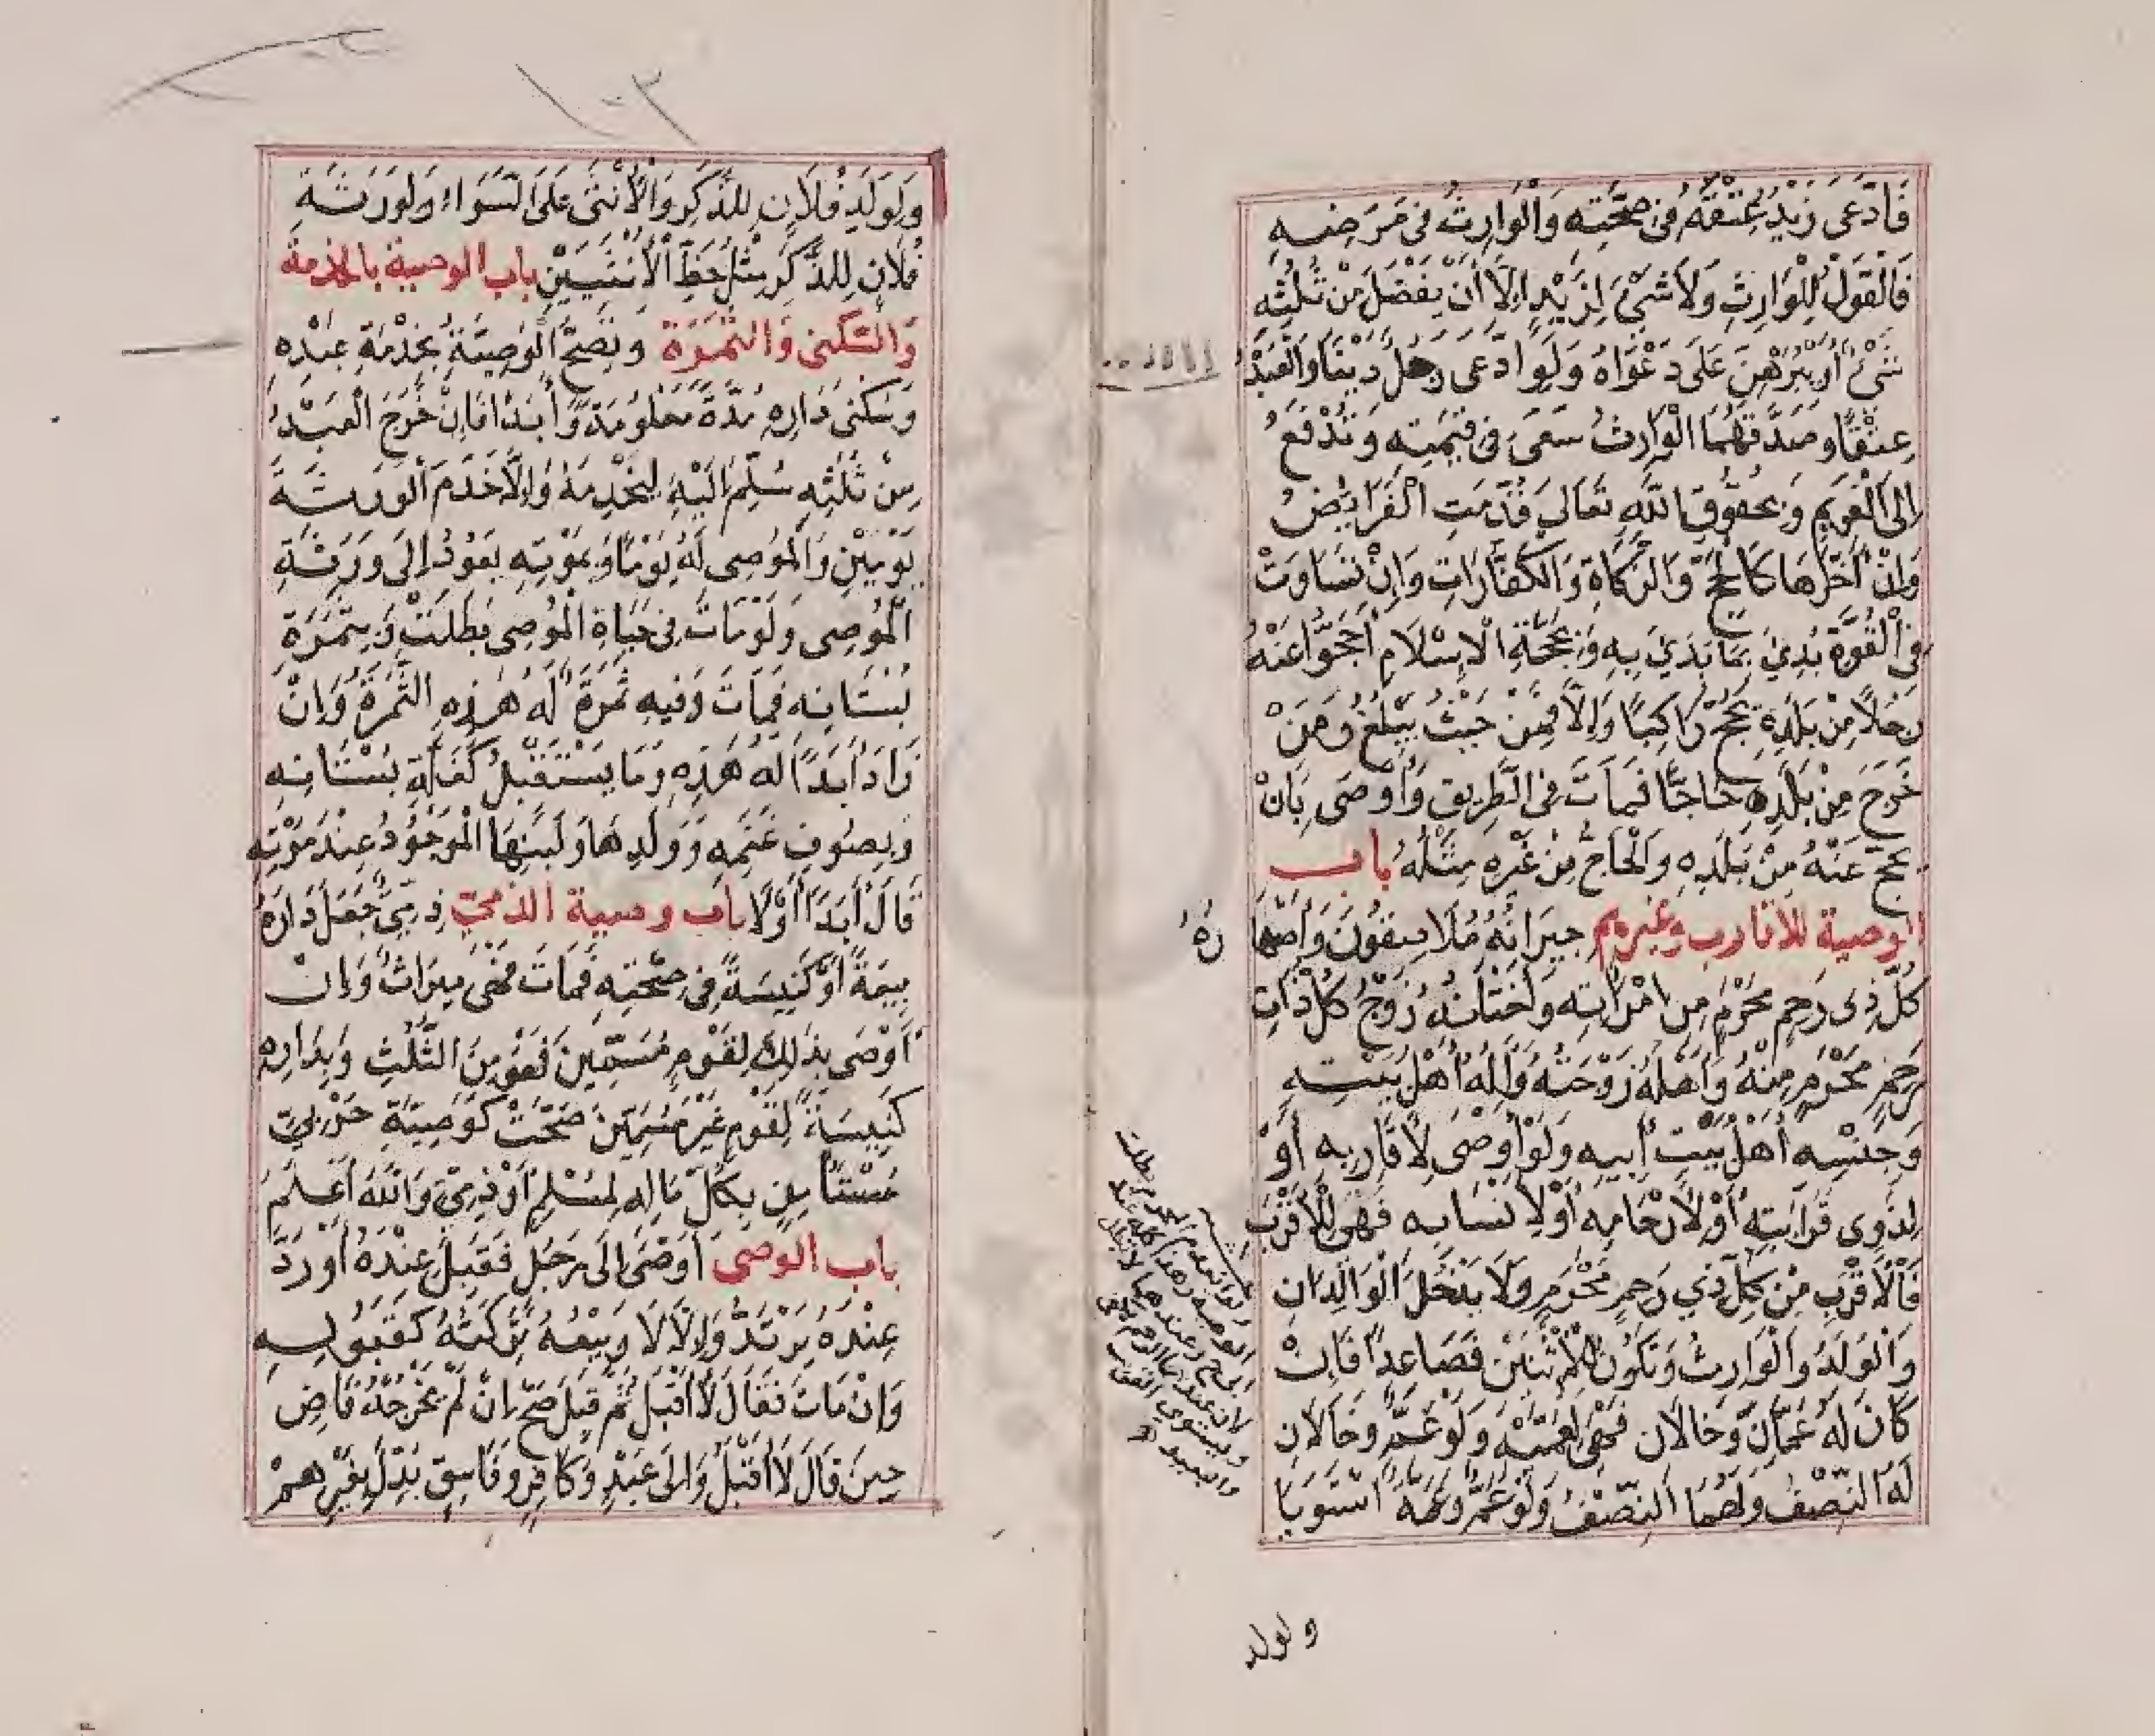 فَادَّعَى زَيْدٌ عِتْقَهُ فِى صِحَّتِهِ وَالْوَارِثُ فِى مَرَضِهِ
فَالْقَوْلُ لِلْوَارِثِ وَلَا شَىْءَ لِزَيْدٍ اِلَّا أَنْ يَفْضُلَ مِنْ ثُلُثِهِ
شَىْءٌ أَوْ يُبَرْهِنَ عَلَى دَعْوَاهُ وَلَوِ ادَّعَى رَجُلٌ دَيْنًا وَالْعَبْدُ
عِتْقًا وَصَدَّقَهُمَا الْوَارِثُ سَعَى فِى قِيمَتِهِ وَتُدْفَعُ
اِلَى الْغَرِيمِ وَبِحُقُوقِ اللَّهِ تَعَالَى قُدِّمَتِ الْفَرَائِضُ
وَإِنْ أَخَّرَهَا كَالْحَجِّ وَالزَّكَاةِ وَالْكَفَّارَاتِ وَإِنْ تَسَاوَتْ
فِى الْقُوَّةِ بُدِئَ بِمَا بَدَئَ بِهِ وَبِحَجَّةِ الْاِسْلَامِ أَحَجُّوا عَنْهُ
رَجُلًا مِنْ بَلَدِهِ يَحُجُّ رَاكِبًا وَإِلَّا فَمِنْ حَيْثُ يَبْلُغُ وَمَنْ
خَرَجَ مِنْ بَلَدِهِ حَاجًّا فَمَاتَ فِى الطَّرِيقِ وَأَوْصَى بِأَنْ
يُحَجَّ عَنْهُ مِنْ بَلَدِهِ وَالْحَاجُّ عَنْ غَيْرِهِ مِثْلُهُ باب
الوصية للاقارب وغيرهم جِيرَانُهُ مُلَاصِقُونَ وَأَصْهَارُهُ
كُلُّ ذِى رَحِمٍ مَحْرَمٍ مِنِ امْرَأَتِهِ وَأَخْتَانُهُ زَوْجُ كُلِّ ذَاتِ
رَحِمٍ مَحْرَمٍ مِنْهُ وَأَهْلُهُ زَوْجَتُهُ وَآلُهُ أَهْلُ بَيْتِهِ
وَجِنْسُهُ أَهْلُ بَيْتِ أَبِيهِ وَلَوْ أَوْصَى لِأَقَارِبِهِ أَوْ
لِذَوِى قَرَابَتِهِ أَوْ لِأَرْحَامِهِ أَوْ لِأَنْسَابِهِ فَهِىَ لِلْأَقْرَبِ
فَالْأَقْرَبِ مِنْ كُلِّ ذِي رَحِمٍ مَحْرَمٍ وَلَا يَدْخُلُ الْوَالِدَانِ
وَالْوَلَدُ وَالْوَارِثُ وَتَكُونُ لِلْاِثْنَيْنِ فَصَاعِدًا فَإِنْ
كَانَ لَهُ عَمَّانِ وَخَالَانِ فَهِىَ لِعَمَّيْهِ وَلَوْ عَمٌّ وَخَالَانِ
لَهُ النِّصْفُ وَلَهُمَا النِّصْفُ وَلَوْ عَمٌّ وَعَمَّةٌ اسْتَوَيَا
ولولد
وَلِوَلَدِ فُلَانٍ لِلذَّكَرِ وَالْأُنْثَى عَلَى السَّوَاءِ وَلِوَرَثَةِ
فُلَانٍ لِلذَّكَرِ مِثْلُ حَظِّ الْأُنْثَيَيْنِ باب الوصية بالخدمة
والسكنى والثمرة وَتَصِحُّ الْوَصِيَّةُ بِخِدْمَةِ عَبْدِهِ
وَسُكْنَى دَارِهِ مُدَّةً مَعْلُومَةً وَأَبَدًا فَإِنْ خَرَجَ الْعَبْدُ
مِنْ ثُلُثِهِ سُلِّمَ اِلَيْهِ لِيَخْدِمَهُ وَإِلَّا خَدَمَ الْوَرَثَةَ
يَوْمَيْنِ وَالْمُوصَى لَهُ يَوْمًا وَبِمَوْتِهِ يَعُودُ إِلَى وَرَثَةِ
الْمُوصِى وَلَوْ مَاتَ فِى حَيَاةِ الْمُوصِى بَطَلَتْ وَبِثَمَرَةِ
بُسْتَانِهِ فَمَاتَ وَفِيهِ ثَمَرَةٌ لَهُ هَذِهِ الثَّمَرَةُ وَإِنْ
زَادَ أَبَدًا لَهُ هَذِهِ وَمَا يَسْتَقْبِلُ كَغَلَّةِ بُسْتَانِهِ
وَبِصُوفِ غَنَمِهِ وَوَلَدِهَا وَلَبَنِهَا الْمَوْجُودُ عِنْدَ مَوْتِهِ
قَالَ أَبَدًا أَوْ لَا باب وصية الذمي ذِمِّيٌّ جَعَلَ دَارَهُ
بِيعَةً أَوْ كَنِيسَةً فِى صِحَّتِهِ فَمَاتَ فَهِىَ مِيرَاثٌ وَإِنْ
أَوْصَى بِذَلِكَ لِقَوْمٍ مُسَمَّيْنَ فَهُوَ مِنَ الثُّلُثِ وَبِدَارِهِ
كَنِيسَةً لِقَوْمٍ غَيْرِ مُسَمَّيْنَ صَحَّتْ كَوَصِيَّةِ حَرْبِيٍّ
مُسْتَأْمِنٍ بِكُلِّ مَالِهِ لِمُسْلِمٍ أَوْ ذِمِّيٍّ وَاللَّهُ أَعْلَمُ
باب الوصى أَوْصَى إِلَى رَجُلٍ فَقَبِلَ عِنْدَهُ أَوْ رَدَّ
عِنْدَهُ يَرْتَدُّ وَإِلَّا لَا وَبَيْعُهُ تَرِكَتَهُ كَقَبُولِهِ
وَإِنْ مَاتَ فَقَالَ لَا أَقْبَلُ ثُمَّ قَبِلَ صَحَّ إِنْ لَمْ يُخْرِجْهُ قَاضٍ
حِينَ قَالَ لَا أَقْبَلُ وَإِلَى عَبْدٍ وَكَافِرٍ وَفَاسِقٍ بُدِّلَ بِغَيْرِهِمْ